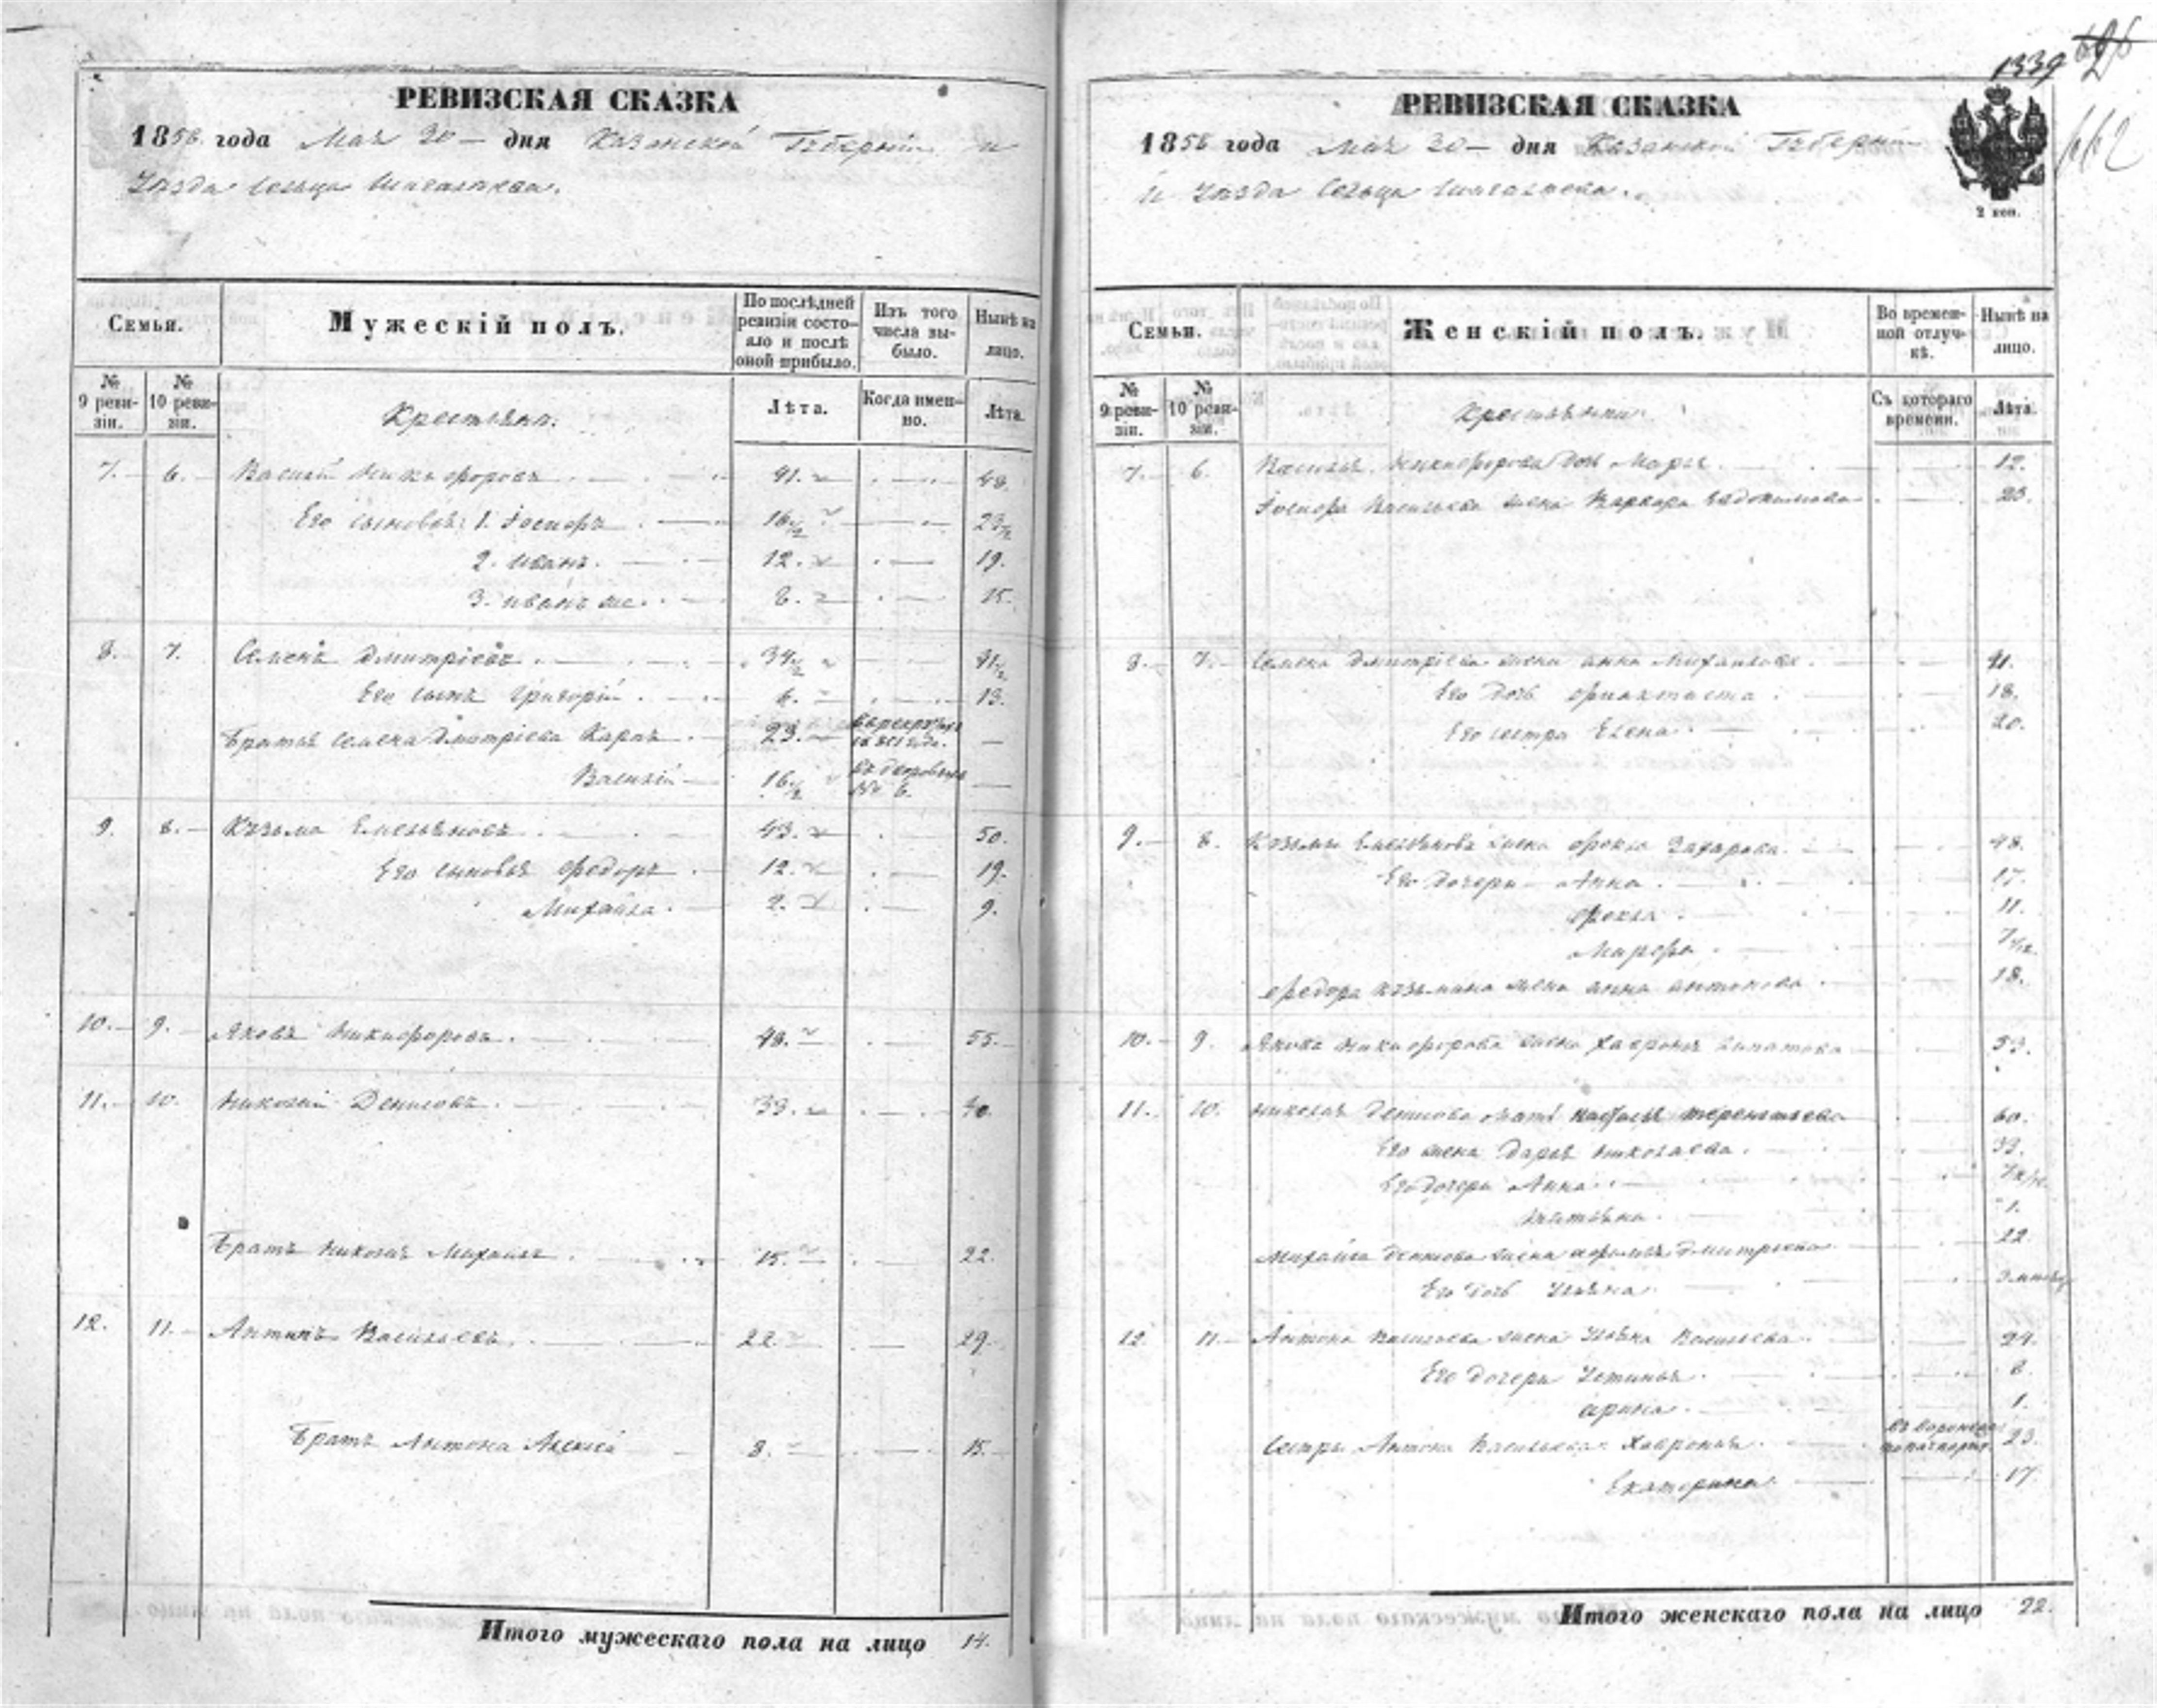 РЕВИЗСКАЯ СКАЗКА
1858 года Мая 20 — дня Казанской Губернии и
Уезда Сельца
Семьи.
Мужескій полъ.
По послѣдней ревизіи состояло и послѣ оной прибыло.
Изъ того числа выбыло.
Нынѣ на лицо.
№ 9 ревизіи.
№ 10 ревизіи.
Крестьяне.
Лѣта.
Когда именно.
Лѣта.
7. 6. Василій Никифоровъ 41. 48.
Его сыновья: 1. 16 1/2 23 1/2
2. Иванъ. 12. 19.
3. Иванъ же. 8. 15.
8. 7. Семенъ Дмитріевъ 34 1/2 41 1/2
Его сынъ Григорій 6. 13.
Братья Семена Дмитріева Карпъ 23. въ рекруты —
Василій 16 1/2 —
9. 8. Кузьма Емельяновъ 43. 50.
Его сыновья Федоръ 12. 19.
Михайла 2. 9.
10. 9. Яковъ Никифоровъ. 48. 55.
11. 10. Николай Денисовъ. 33. 40.
Братъ Николая Михайла 15. 22.
12. 11. Антонъ Васильевъ 22. 29.
Братъ Антона Алексей 8. 15.
Итого мужескаго пола на лицо 14.
1339
662
РЕВИЗСКАЯ СКАЗКА
2 коп.
1858 года Мая 20 — дня Казанской Губерніи
и Уезда Сельца
Семьи.
Женскій полъ.
Во временной отлучкѣ.
Нынѣ на лицо.
№ 9 ревизіи.
№ 10 ревизіи.
Крестьянки.
Съ котораго времени.
Лѣта.
7. 6. Василья Никифорова дочь Марья 12.
Васильева жена Варвара Евдокимова 23.
8. 7. Семена Дмитріева жена Анна Михайлова 41.
Его дочь 18.
Его сестра Елена 20.
9. 8. Кузьмы Емельянова жена Фекла Захарова 48.
Его дочери Анна 17.
Фекла 11.
Марфа 7
Федора Кузьмина жена Анна Антонова 18.
10. 9. Якова Никифорова жена Хавронья Ипатова 53.
11. 10. Николая Денисова мать Настасья Терентьева 60.
Его жена Дарья Николаева 33.
Его дочери Анна
Татьяна 1.
Михайла Денисова жена Дмитріева 22.
Его дочь Ульяна
12. 11. Антона Васильева жена Ульяна Васильева 29.
Его дочери Устинья 8.
Арина 1.
Сестры Антона Васильева: Хавронья 23.
Екатерина 17.
Итого женскаго пола на лицо 22.